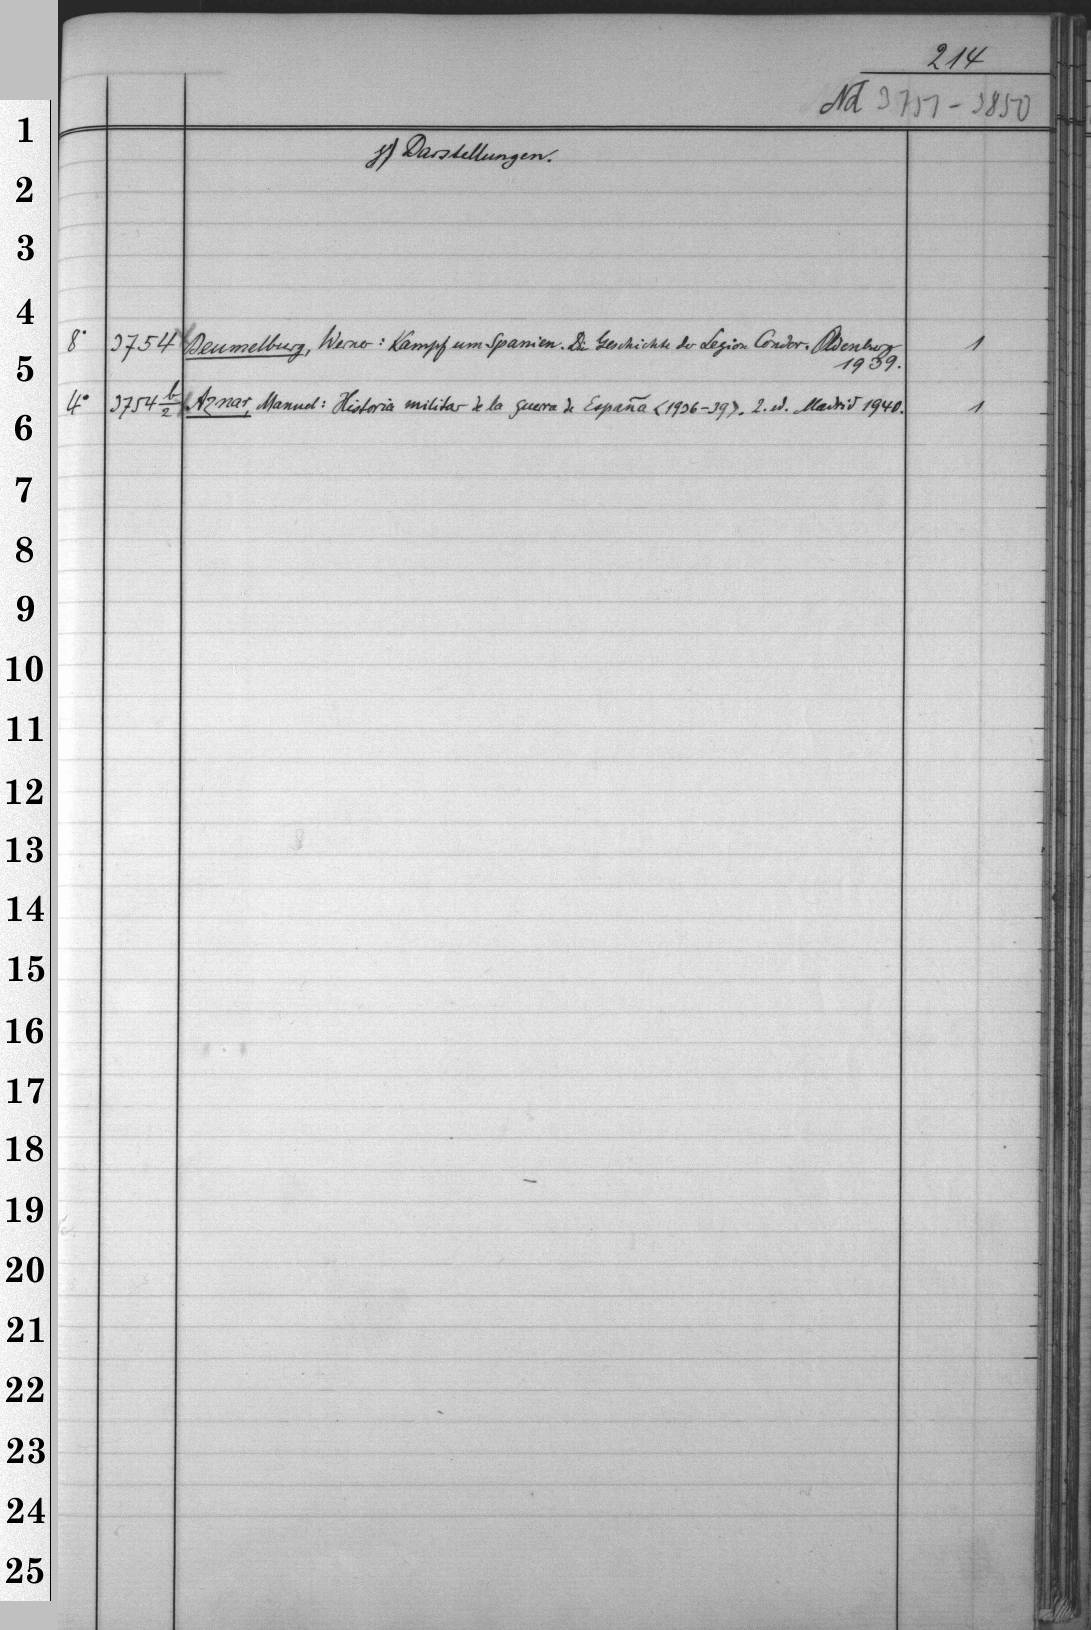 214
Nd 3751-3850
γ) Darstellungen.
8° 3754 Beumelburg, Werner: Kampf um Spanien. Die Geschichte der Legion Condor. Oldenburg 1
1939.
4° 3754 b/2 Aznar, Manuel: Historia militar de la guerra de España <1936-39>. 2. ed. Madrid 1940. 1
1
2
3
4
5
6
7
8
9
10
11
12
13
14
15
16
17
18
19
20
21
22
23
24
25